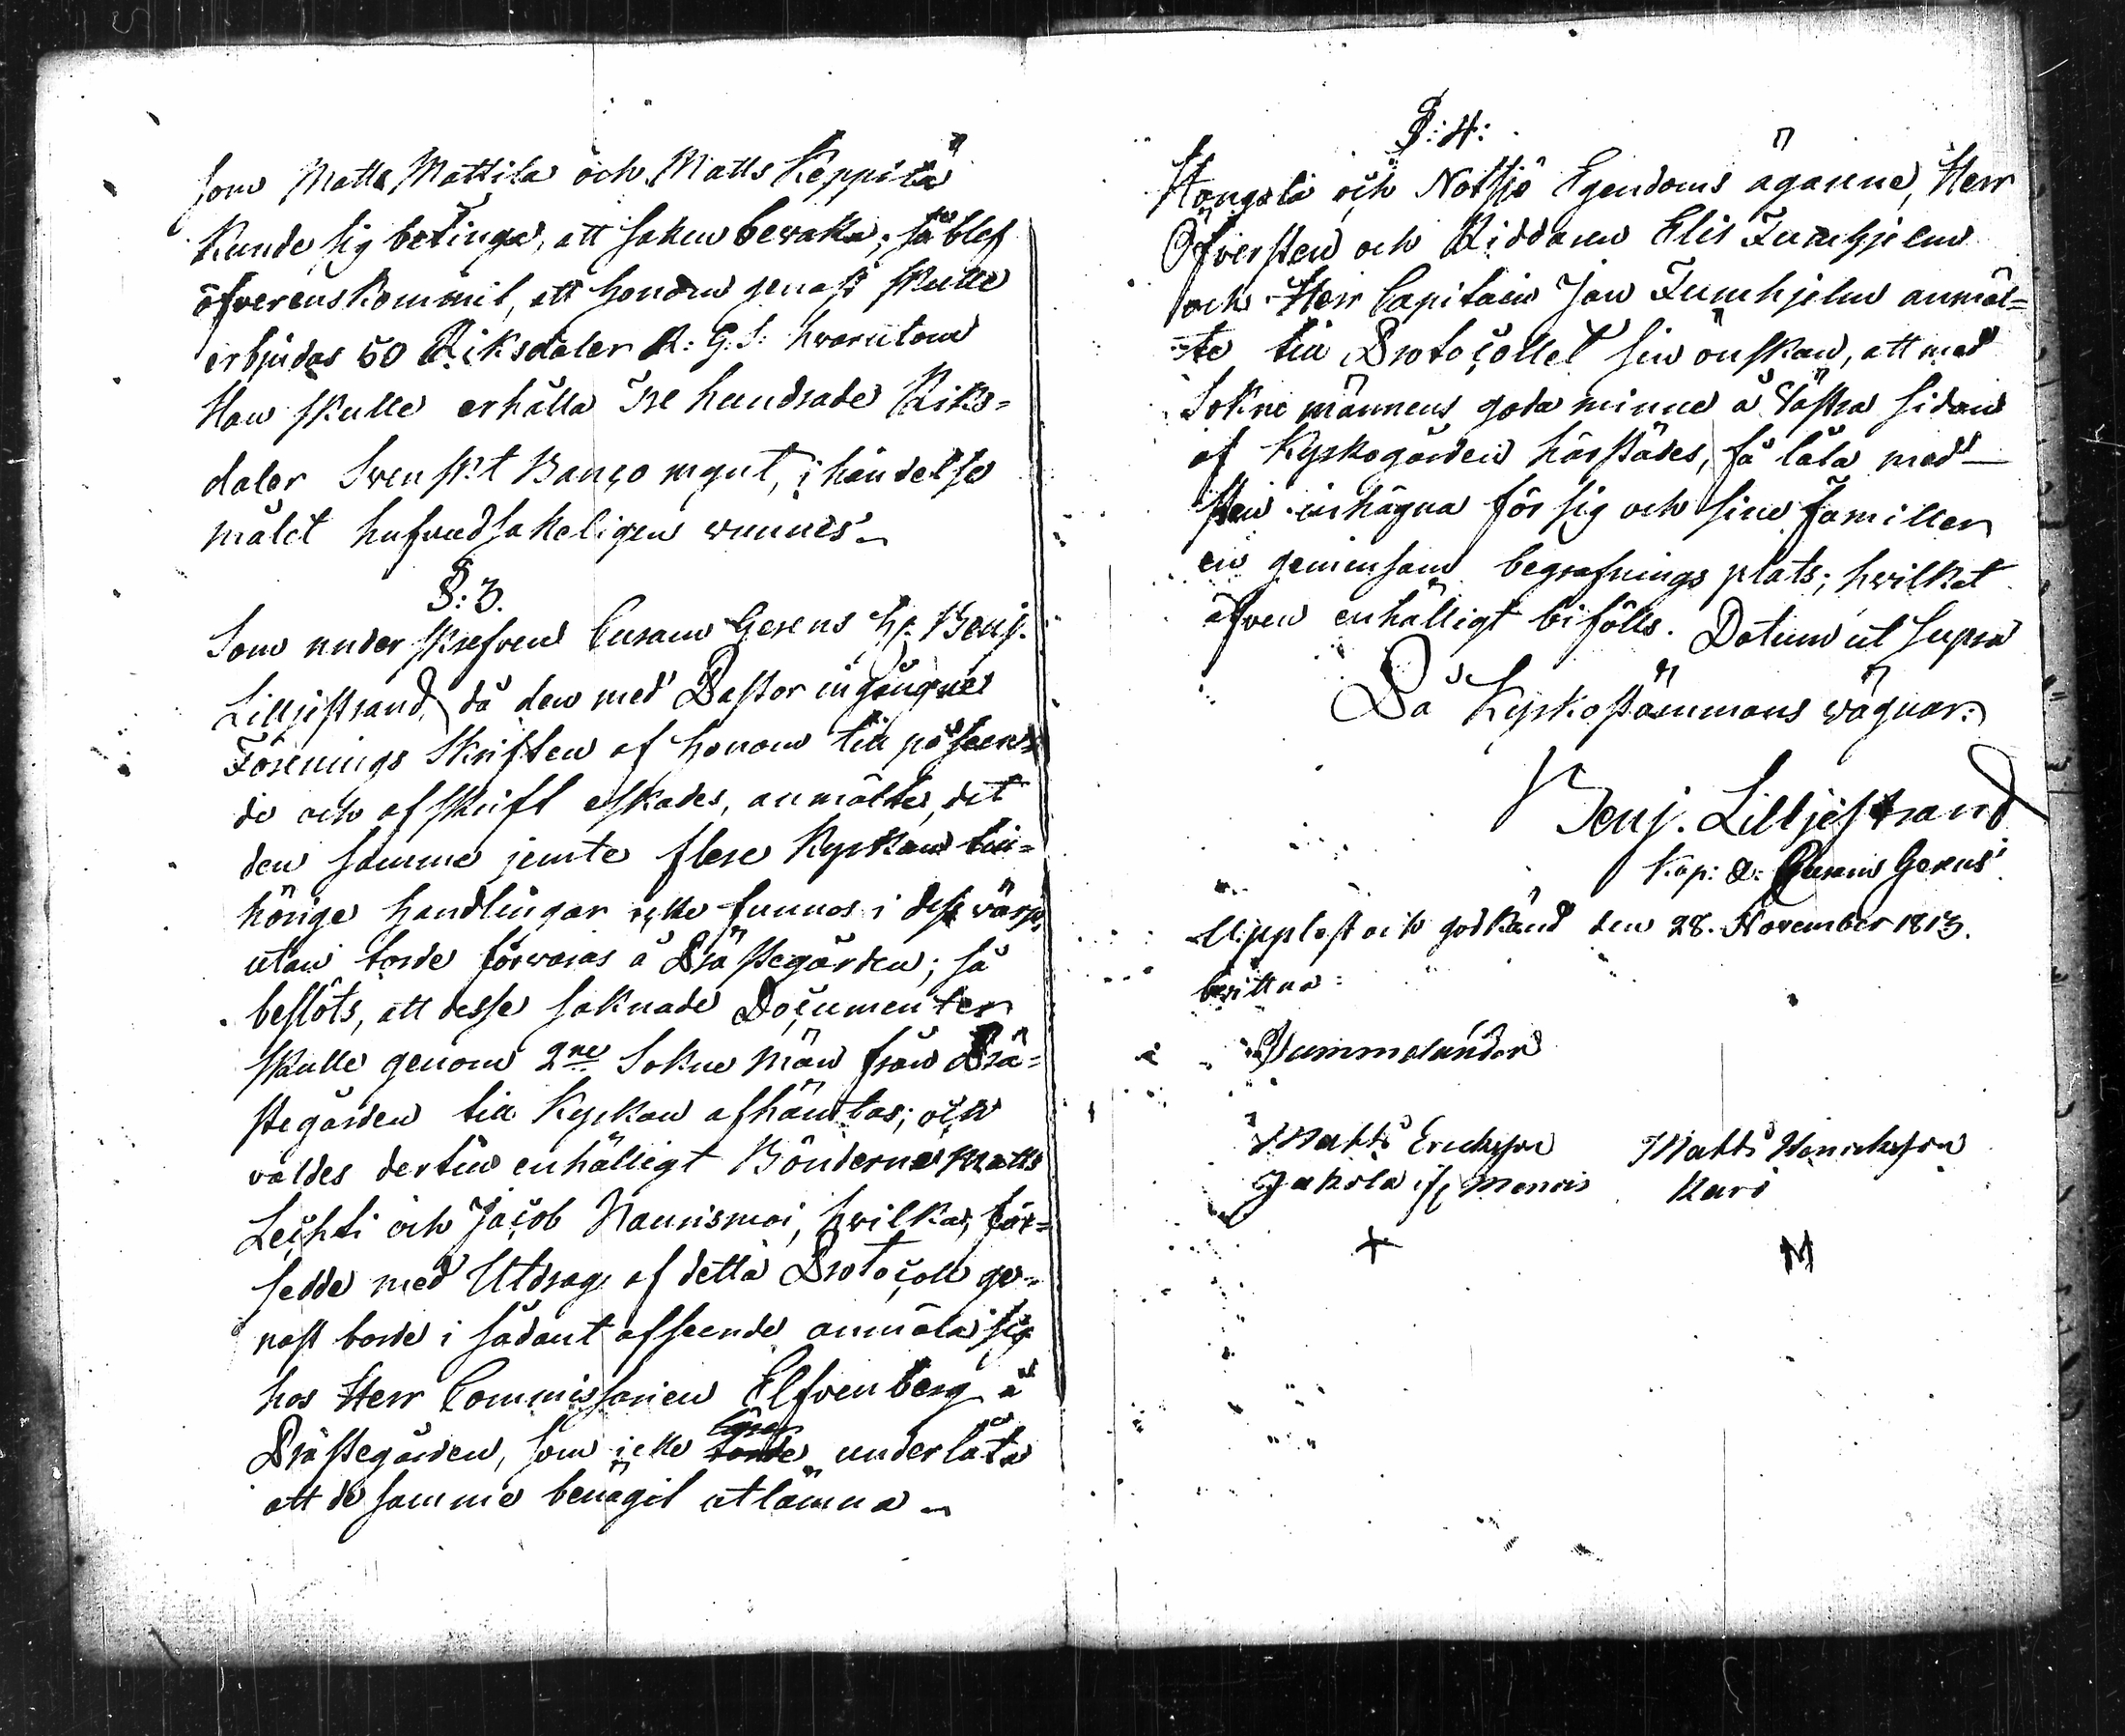 som Matts Mattila och Matts Keppilä
kunde sig betinga, att saken bevaka; så blef
öfverenskommit, att honom genast skulle
erbjudas 50 Riksdaler R: G.S: hvarutom
Han skulle erhålla Tre hundrade Riks=
daler Svenskt Banco mynt, i händelse
målet hufvudsakeligen vunnes.
§: 3.
Som underskrefven Curam Gerens Hr. Benj.
Lilljestrand, då den med Pastor ingångne
Förenings Skriften af honom till påseen=
de och afskrift äskades, anmälte, det
den samme jemte flere Kyrkan till=
hörige handlingar icke funnos i dess värjo,
utan torde förvaras å Prästegården; så
beslöts, att desse saknade Documenter
skulle genom 2ne Sokne män från Prä=
stegården till Kyrkan afhämtas; och
valdes dertill enhälligt Bönderne Matts
Lechti och Jacob Naurismoi, hvilka, för=
sedde med Utdrag af detta Protocoll ge=
nast borde i sådant afseende anmäla sig
hos Herr Commissarien Elfvenberg å
Prästegården, som icke torde underlåta
att de samme benägit utlämna
§: 4:
Hongola och Notsjö Egendoms ägarne, Herr
Öfversten och Riddaren Elis Furuhjelm
och Herr Capitain Jan Furuhjelm anmäl=
te till Protocollet sin önskan, att med
Sokne männens goda minne å Västra sidan
af Kyrkogården härstädes, få låta med
sten inhägna för sig och sine familler
en gemensam begrafnings plats; hvilket
äfven enhälligt bifölls. Datum ut supra
På Kyrkostämmans vägnar:
Benj. Lilljestrand
Kap: & Curam Gerens
Uppläst och godkänd den 28. November 1813.
bevittna:
Gummelander
Matts Ericksson Matts Henricksson
Jakola Kari
+ M